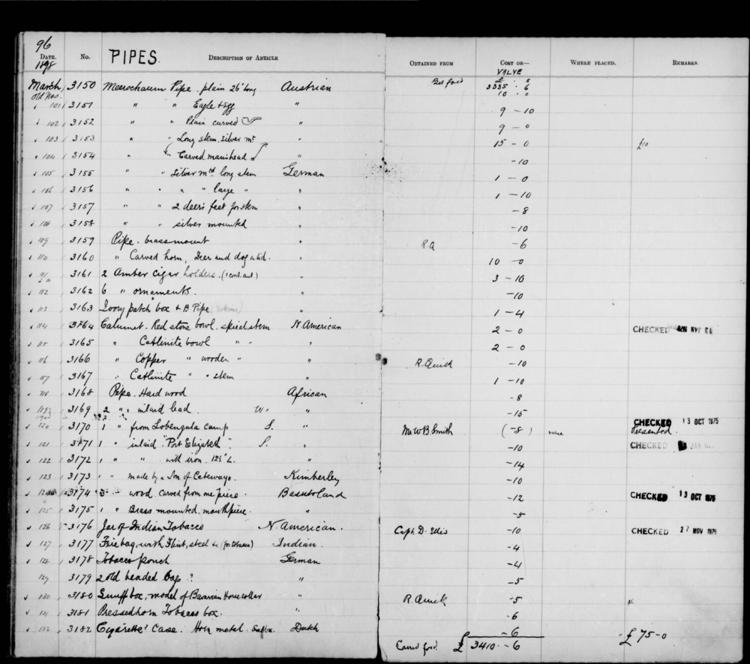 96
PIPES.
DATE. 1898 No. DESCRIPTION OF ARTICLE OBTAINED FROM COST OR— VALUE WHERE PLACED. REMARKS.
March 3150 Meerschaum Pipe. plain 26" long Austrian Bot ford £ 3335 . 6
Old Nos. 10 . 0
101 3151 " " Eagle & egg " 9 – 10
102 3152 " " Plain curved " 9 – 0
103 3153 " " Long stem, silver mt " 15 – 0 £10
104 3154 " " Carved mans head " – 10
105 3155 " " Silver mtd long stem German 1 – 0
106 3156 " " " " large " " 1 – 10
107 3157 " " 2 deer's feet for stem " – 8
108 3158 " " silver mounted " – 10
109 3159 Pipe. brass mount " R.Q – 6
110 3160 " Carved horn, Deer and dog a lid. " 10 – 0
3161 2 Amber cigar holders. " 3 – 10
112 3162 6 " ornaments. " – 10
113 3163 Ivory patch box & B Pipe " 1 – 4
114 3164 Calumet. Red stone bowl. spiral stem N American 2 – 0 CHECKED
115 3165 " Catlinite bowl " " " 2 – 0
116 3166 " Copper " wooden " " R. Quick – 10
117 3167 " Catlinite " " stem " 1 – 10
118 3168 Pipe. Hard wood African – 8
119 3169 2 " inlaid lead. " – 15
120 3170 1 " from Lobengula camp S. " Mr W B Smith (– 8) value CHECKED 13 OCT 1975
121 3171 1 " inlaid "Port Elizabeth" S. " – 10 CHECKED
122 3172 1 " " with iron 12½" L. " – 14
123 3173 1 " made by a Son of Cetewayo. Kimberley – 10
3174 3 " wood carved from one piece Basutoland – 12 CHECKED 13 OCT 1975
125 3175 1 " Brass mounted. mouthpiece " – 5
126 3176 Jar of Indian Tobacco N American. Capt. D. – 10 CHECKED 27 NOV 1975
127 3177 Fire bag, with Flint, steel & Indian. – 4
128 3178 Tobacco pouch German – 4
129 3179 2 old beaded Bags ? – 5
130 3180 Snuff box, model of Bavarian Horse collar " R Quick – 5
131 3181 Pressed horn Tobacco box. " – 6
132 3182 Cigarette Case. Horn metal. Dutch – 6 £75–0
Carrd ford. £ 3410 – 6